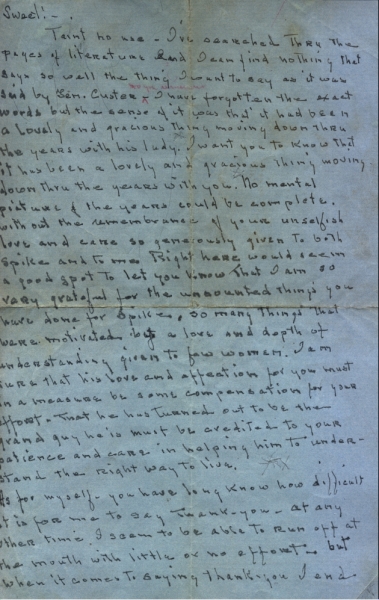 Sweet! -
Taint no use - I've searched Thru the
pages of literature and I can find nothing that
says so well the thing I want to say as it was
said by Gen. Custer. I have forgotten the exact
words but the sense of it was that it had been
a lovely and gracious thing moving down thru
the years with his lady. I want you to know that
it has been a lovely and gracious thing moving
down thru the years with you. No mental
picture of the years could be complete,
without the remembrance of your unselfish
love and care so generously given to both
Spike and to me. Right here would seem
a good spot to let you know that I am so
very grateful for the uncounted things you
have done for Spike, so many things that
were motivated by a love and depth of
understanding given to few women. I am
sure that his love and affection for you must
in a measure be some compensation for your
effort - That he has turned out to be the
grand guy he is must be credited to your
patience and care in helping him to under-
stand the right way to live.
As for myself - you have long know how difficult
it is for me to say Thank-you - at any
other time I seem to be able to run off at
the mouth with little or no effort - but
when it comes to saying thank-you I end